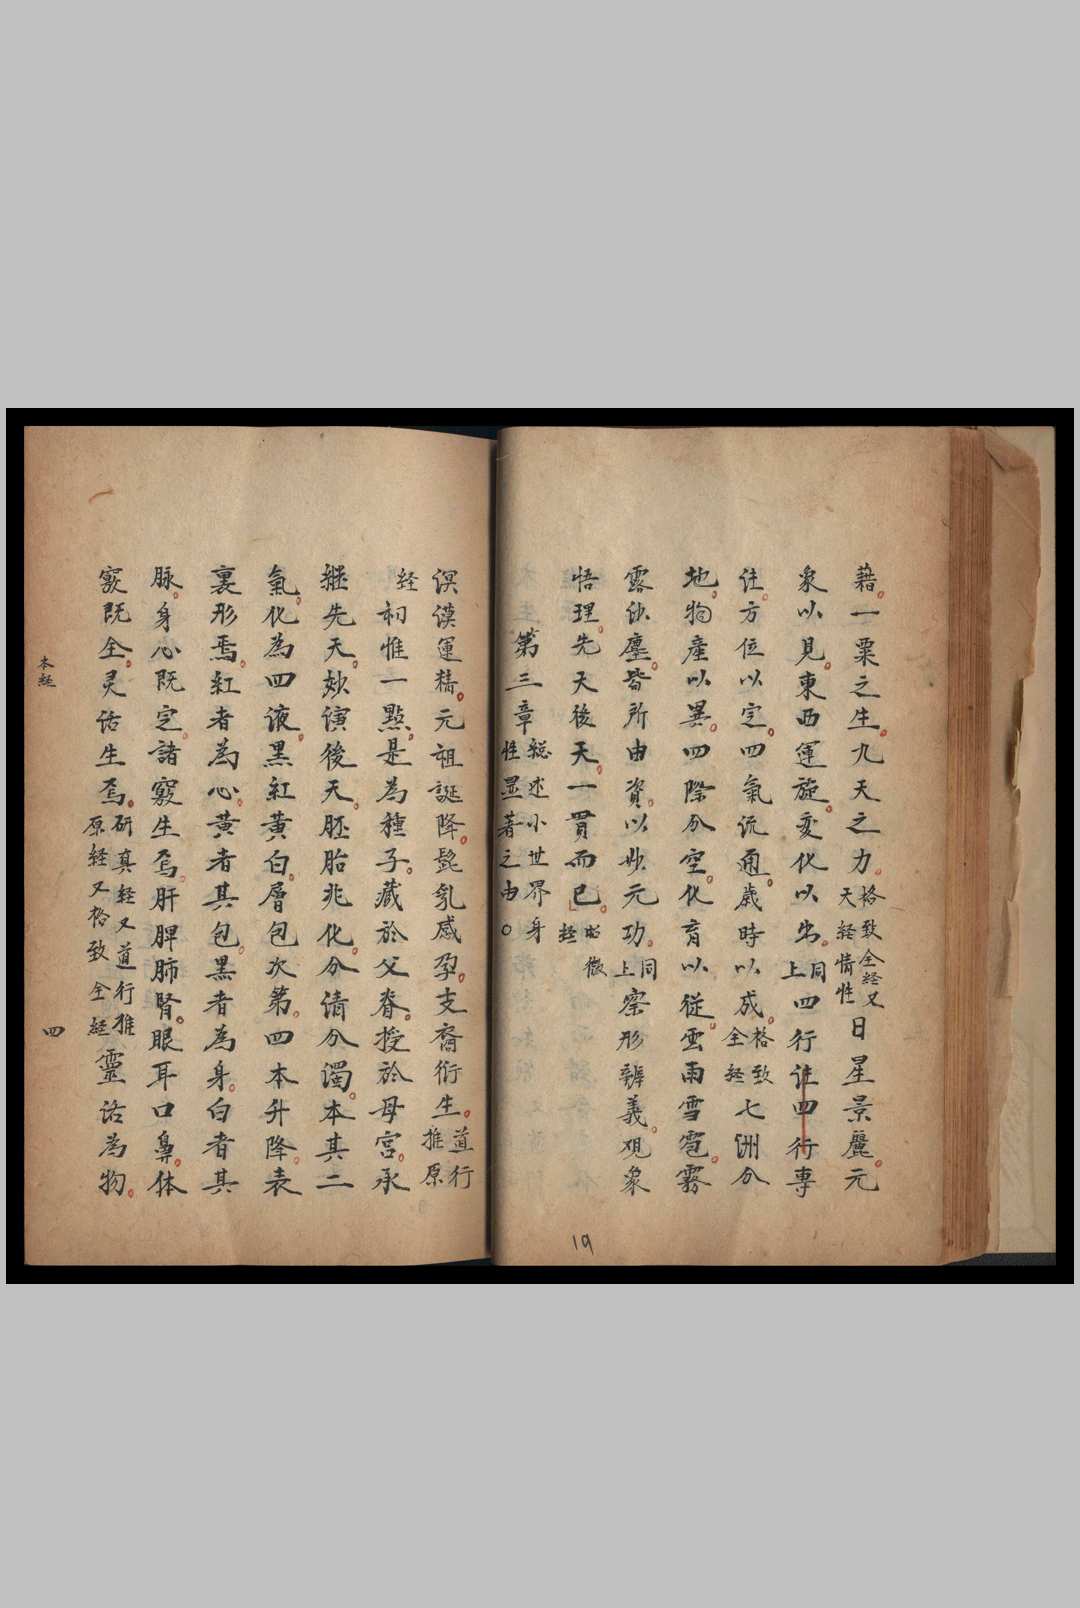 藉一粟之生九天之力格致全経又天経情性日星景麗元
象以見東西運旋変化以出同上四行往四行専
住方位以定四氣流通歳時以成格致全経七洲分
地物産以異四際分空化育以従雲雨雪雹霧
露砂塵皆所由資以妙元功同上察形辨義观象
悟理先天後天一貫而已昭微経
第三章総述小世界身性显著之由○
溟漠運精元祖誕降髡乳感孕支裔衍生道行推原
経初惟一點是為種子藏於父脊授於母宮承
継先天妙演後天胚胎兆化分清分濁本其二
氣化為四液黒紅黃白層包次第四本升降表
裏形焉紅者為心黃者其包黒者為身白者其
脉身心既定諸竅生焉肝脾肺腎眼耳口鼻体
竅既全灵活生焉研真経又道行推原経又格致全経靈活為物
本経
四
19